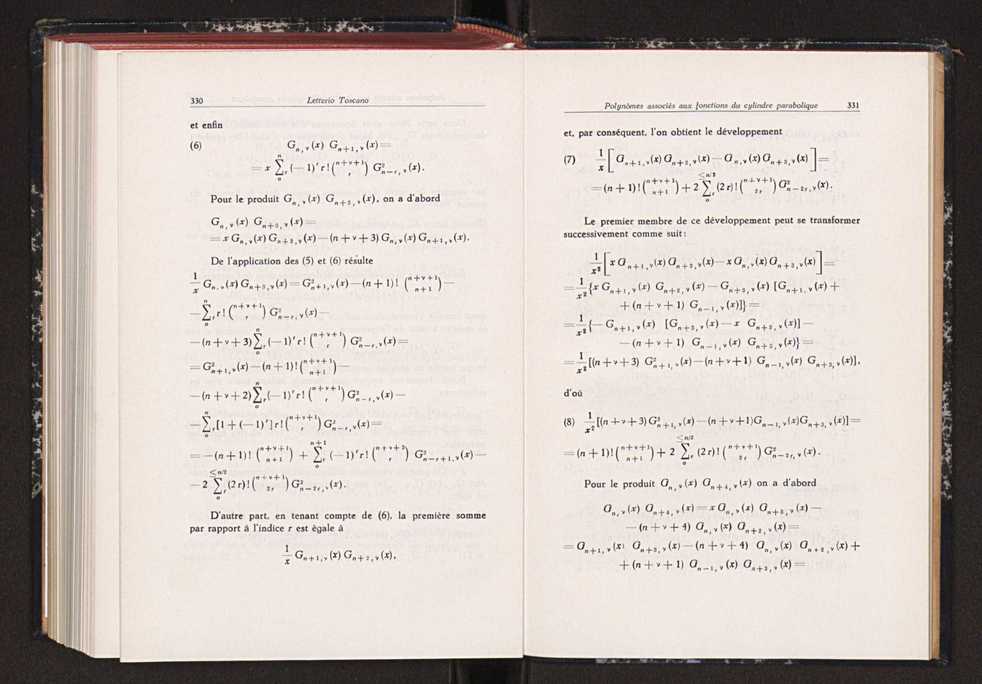 330 Letterio Toscano
et enfin
(6) G_{n,ν}(x) G_{n+1,ν}(x) =
= x ∑_{0}^{n}{}_r (—1)^r r! \binom{n+ν+1}{r} G²_{n−r,ν}(x).
Pour le produit G_{n,ν}(x) G_{n+3,ν}(x), on a d'abord
G_{n,ν}(x) G_{n+3,ν}(x) =
= x G_{n,ν}(x) G_{n+2,ν}(x) — (n + ν + 3) G_{n,ν}(x) G_{n+1,ν}(x).
De l'application des (5) et (6) résulte
\frac{1}{x} G_{n,ν}(x) G_{n+3,ν}(x) = G²_{n+1,ν}(x) — (n + 1)! \binom{n+ν+1}{n+1} —
— ∑_{0}^{n}{}_r r! \binom{n+ν+1}{r} G²_{n−r,ν}(x) —
— (n + ν + 3) ∑_{0}^{n}{}_r (—1)^r r! \binom{n+ν+1}{r} G²_{n−r,ν}(x) =
= G²_{n+1,ν}(x) — (n + 1)! \binom{n+ν+1}{n+1} —
— (n + ν + 2) ∑_{0}^{n}{}_r (—1)^r r! \binom{n+ν+1}{r} G²_{n−r,ν}(x) —
— ∑_{0}^{n}{}_r [1 + (—1)^r] r! \binom{n+ν+1}{r} G²_{n−r,ν}(x) =
= — (n + 1)! \binom{n+ν+1}{n+1} + ∑_{0}^{n+1}{}_r (—1)^r r! \binom{n+ν+2}{r} G²_{n−r+1,ν}(x) —
— 2 ∑_{0}^{≤n/2}{}_r (2r)! \binom{n+ν+1}{2r} G²_{n−2r,ν}(x).
D'autre part, en tenant compte de (6), la première somme
par rapport à l'indice r est égale à
\frac{1}{x} G_{n+1,ν}(x) G_{n+2,ν}(x),
Polynômes associés aux fonctions du cylindre parabolique 331
et, par conséquent, l'on obtient le développement
(7) \frac{1}{x} [G_{n+1,ν}(x) G_{n+2,ν}(x) — G_{n,ν}(x) G_{n+3,ν}(x)] =
= (n + 1)! \binom{n+ν+1}{n+1} + 2 ∑_{0}^{≤n/2}{}_r (2r)! \binom{n+ν+1}{2r} G²_{n−2r,ν}(x).
Le premier membre de ce développement peut se transformer
successivement comme suit:
\frac{1}{x²} [x G_{n+1,ν}(x) G_{n+2,ν}(x) — x G_{n,ν}(x) G_{n+3,ν}(x)] =
= \frac{1}{x²} {x G_{n+1,ν}(x) G_{n+2,ν}(x) — G_{n+3,ν}(x) [G_{n+1,ν}(x) +
+ (n + ν + 1) G_{n−1,ν}(x)]} =
= \frac{1}{x²} {— G_{n+1,ν}(x) [G_{n+3,ν}(x) — x G_{n+2,ν}(x)] —
— (n + ν + 1) G_{n−1,ν}(x) G_{n+3,ν}(x)} =
= \frac{1}{x²} [(n + ν + 3) G²_{n+1,ν}(x) — (n + ν + 1) G_{n−1,ν}(x) G_{n+3,ν}(x)],
d'où
(8) \frac{1}{x²} [(n + ν + 3) G²_{n+1,ν}(x) — (n + ν + 1) G_{n−1,ν}(x) G_{n+3,ν}(x)] =
= (n + 1)! \binom{n+ν+1}{n+1} + 2 ∑_{0}^{≤n/2}{}_r (2r)! \binom{n+ν+1}{2r} G²_{n−2r,ν}(x).
Pour le produit G_{n,ν}(x) G_{n+4,ν}(x) on a d'abord
G_{n,ν}(x) G_{n+4,ν}(x) = x G_{n,ν}(x) G_{n+3,ν}(x) —
— (n + ν + 4) G_{n,ν}(x) G_{n+2,ν}(x) =
= G_{n+1,ν}(x) G_{n+3,ν}(x) — (n + ν + 4) G_{n,ν}(x) G_{n+2,ν}(x) +
+ (n + ν + 1) G_{n−1,ν}(x) G_{n+3,ν}(x) =